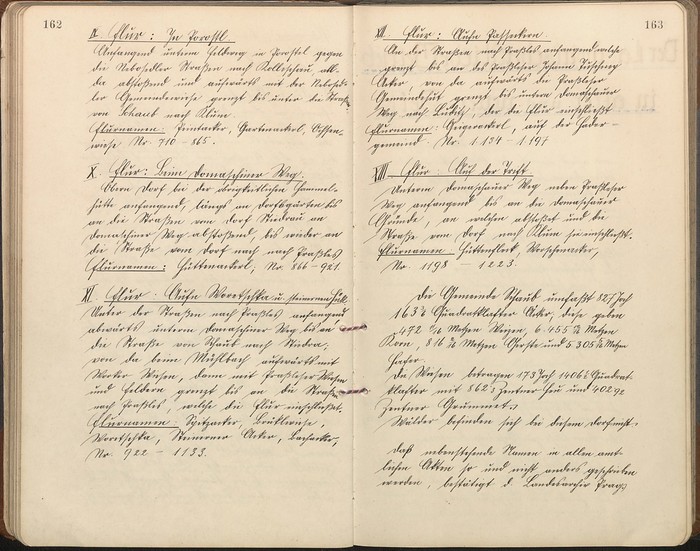 162
IX. Flur: In Porostl
Anfangend unterm Feldweg in Porostel gegen
die Nebosedler Straßen nach Kolleschau, all-
da abstoßend und aufwärts mit der Nebosed-
ler Gemeindewiese grenzt bis unter die Straße
von Schaub nach Klum.
Flurnamen: Gartenackerl, Ochsen-
wiese No. 710 – 865.
X. Flur: Beim Domaschiner Weg.
Oberm Dorf bei der obrigkeitlichen Hammel-
hütte anfangend, längs an Dorfsgärten bis
an die Straßen vom Dorf Niedrau an
Domaschiner Weg abstoßend, bis wieder an
die Straße vom Dorf nach nach Praßles
Flurnamen: Hüttenackerl, No. 866 – 921.
XI. Flur: Aufn Woretschka u. steinernen
Unter der Straßen nach Praßles anfangend
abwärts unterm Domaschiner Weg bis an
die Straße von Schaub nach Niedra,
von da beim Mühlbach aufwärts mit
Wiesen, dann mit Praßleser Wiesen
und Feldern grenzt bis an die Straße
nach Praßles, welche die Flur einschließt.
Flurnamen: Spitzacker, Brütlwiese,
Woretschka, Steinerner Acker, Bachacker,
No. 922 – 1133.
163
XII. Flur: Aufn Passeckern
An der Straßen nach Praßles anfangend welche
grenzt bis an des Praßleser Johann
Acker, von da aufwärts die Praßleser
Gemeindehut grenz bis unterm Domaschauer
Weg nach der die Flur einschließt
Flurnamen: auf der Hader-
gemeind No. 1134 – 1197
XIII. Flur: Auf der Trift
Unterm Domaschauer Weg neben Praßleser
Weg anfangend bis an die Domaschauer
Gründe, an welchen abstoßet und die
Straße vom Dorf nach Klum einschließt.
Flurnamen – Hüttenfleck,
No. 1198 – 1223.
Die Gemeinde Schaub umfaßt 827 Joch
163 Quadratklafter Acker, diese geben
472 Metzen Weizen, 6.455 Metzen
Korn, 816 Metzen Gerste und 5305 Metzen
Hafer.
Die Wiesen betragen 173 Joch 1406 Quadrat-
klafter mit 862 Zentner Heu und 402
Zentner Grummet.
Wälder befinden sich bei diesem Dorfe nicht.
Daß nebenstehende Namen in allen amt-
lichen Akten so und nicht anders geschrieben
werden, bestätigt d. Landesarchiv Prag.